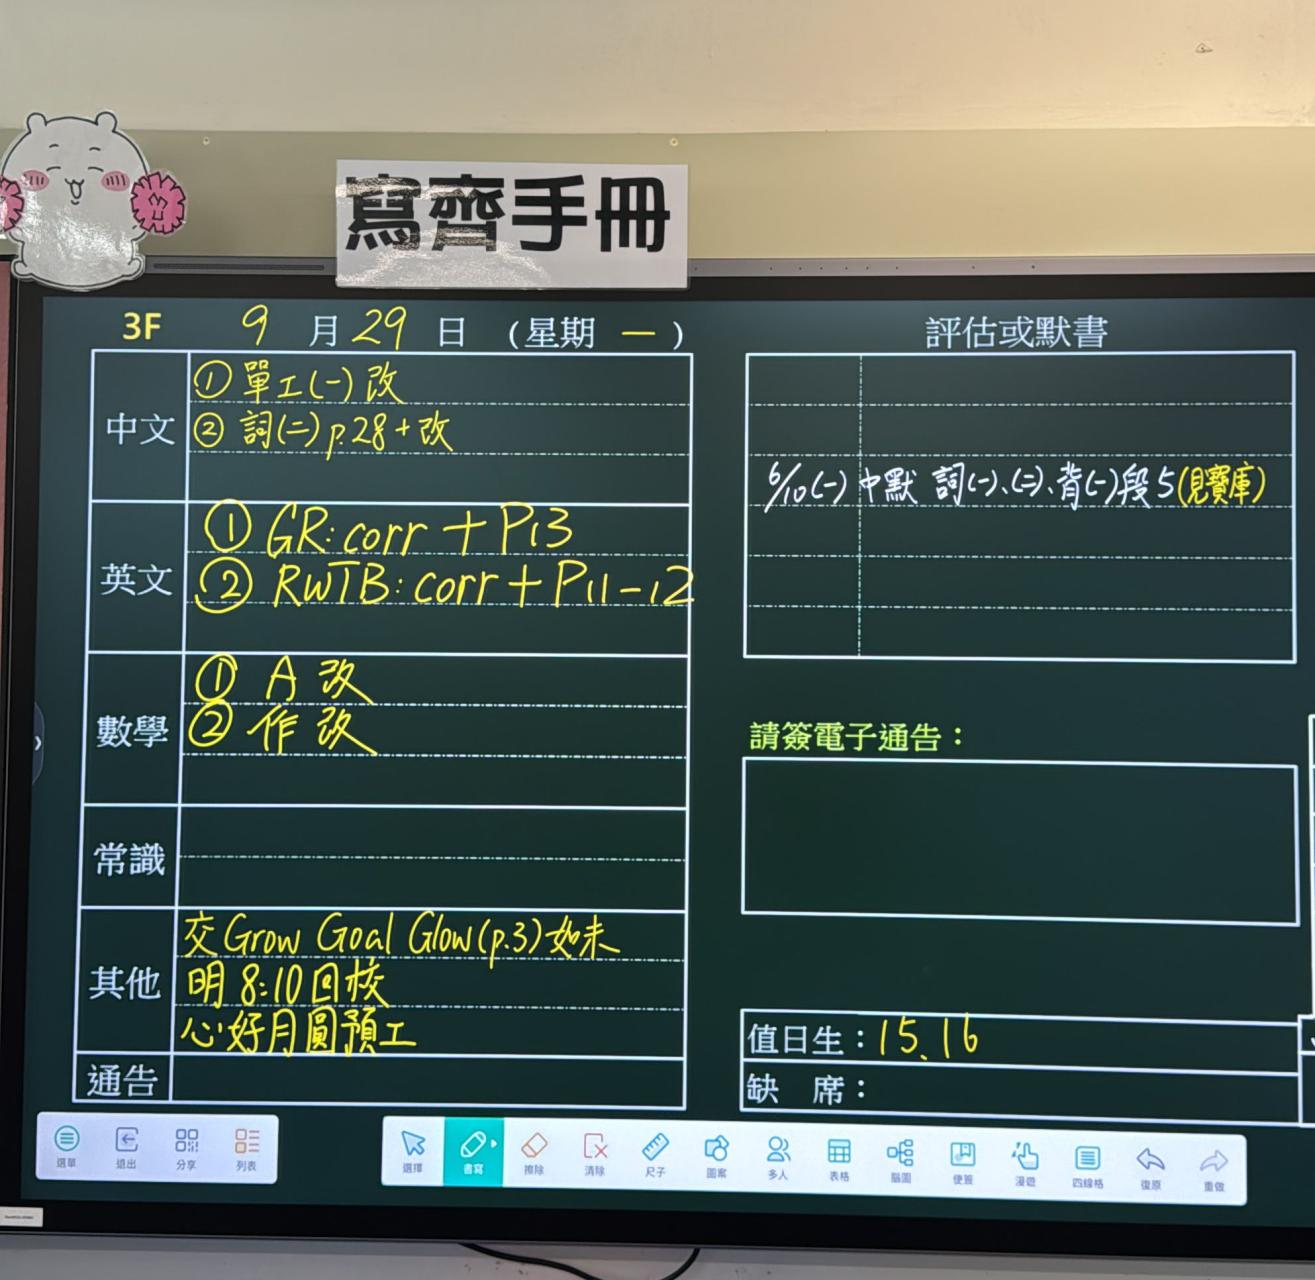 寫齊手冊
3F 9月29日（星期一）
中文
① 單工(一) 改
② 詞(二) p.28+改
英文
① GR: corr + P13
② RWTB: corr + P11-12
數學
① A 改
② 作 改
常識
其他
交 Grow Goal Glow (p.3) 如未
明 8:10 回校
心好月圓預工
通告
評估或默書
6/10(一) 中默 詞(一)、(二)、背(一)段5(見寶庫)
請簽電子通告：
值日生：15、16
缺 席：
選單 退出 分享 列表 選擇 書寫 擦除 清除 尺子 圖案 多人 表格 腦圖 便簽 漫遊 四線格 復原 重做